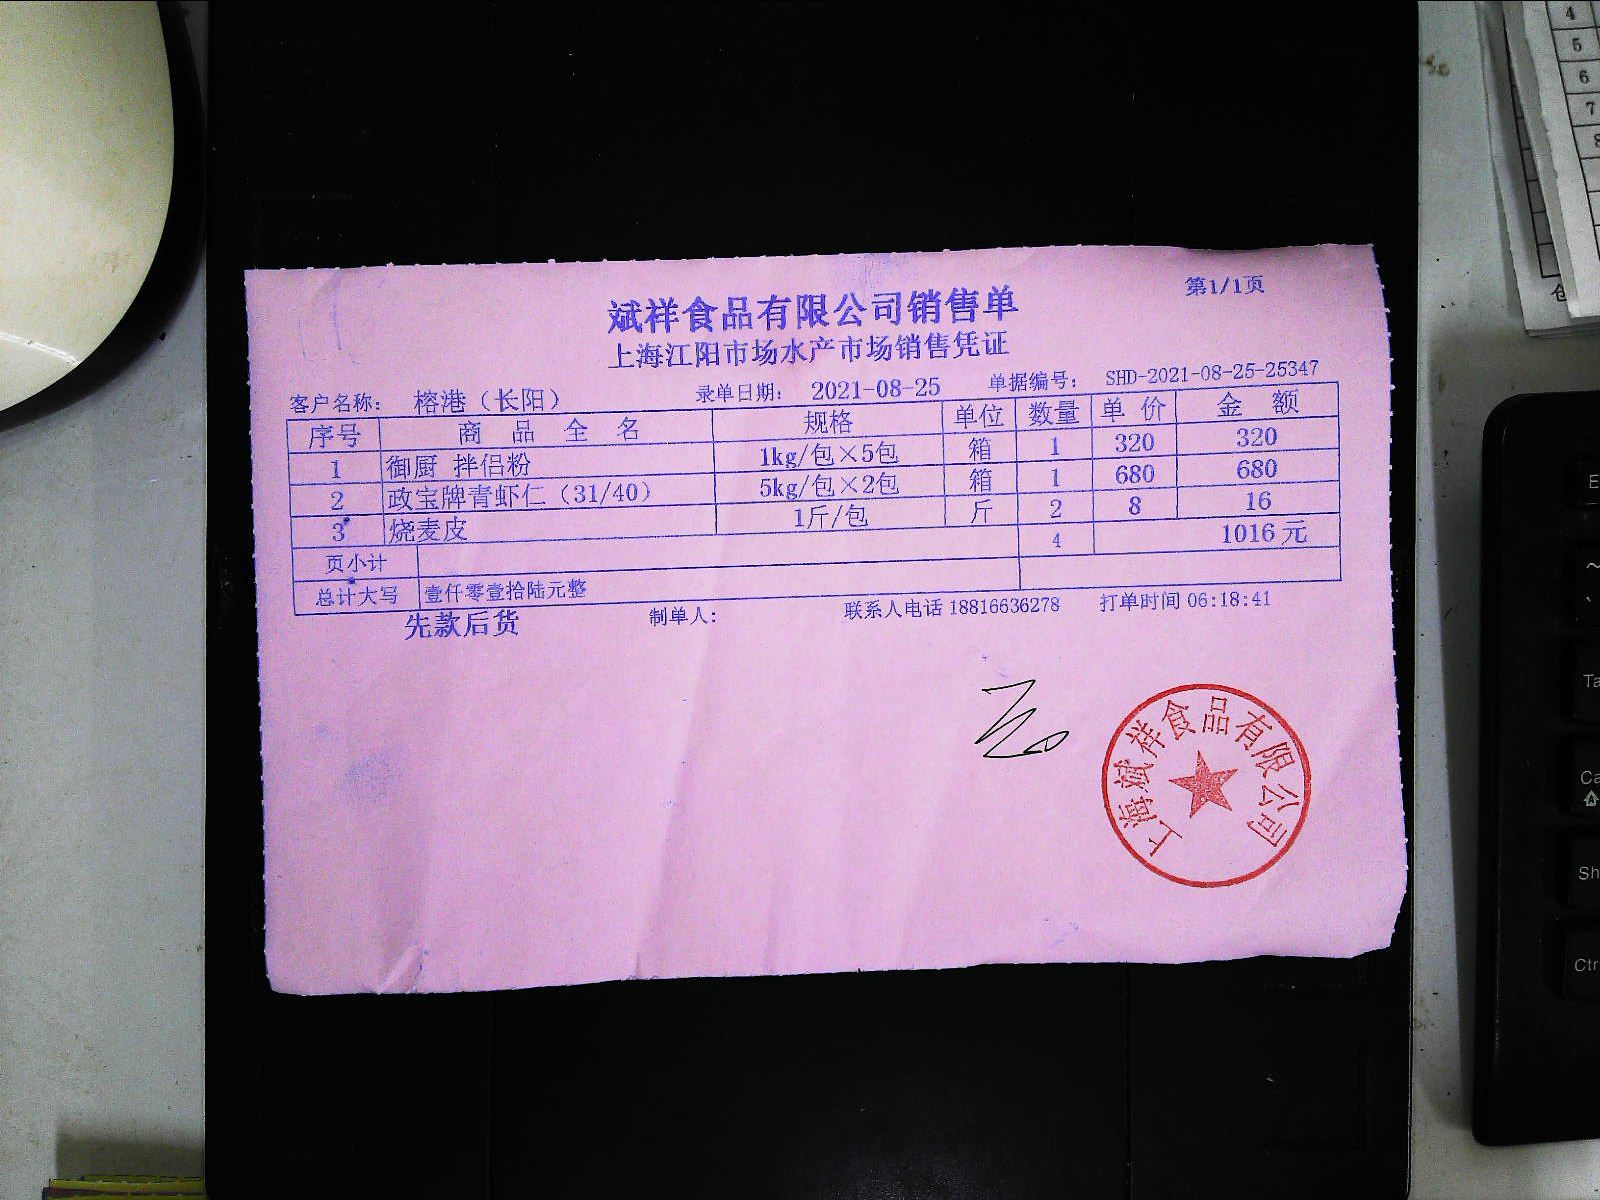 第1/1页
斌祥食品有限公司销售单
上海江阳市场水产市场销售凭证
客户名称： 榕港（长阳） 录单日期： 2021-08-25 单据编号： SHD-2021-08-25-25347
序号 商品全名 规格 单位 数量 单价 金额
1 御厨 拌侣粉 1kg/包×5包 箱 1 320 320
2 政宝牌青虾仁（31/40） 5kg/包×2包 箱 1 680 680
3 烧麦皮 1斤/包 斤 2 8 16
页小计 4 1016 元
总计大写 壹仟零壹拾陆元整
先款后货 制单人： 联系人电话 18816636278 打单时间 06:18:41
上海斌祥食品有限公司
4
5
6
7
8
E
~
Ta
Ca
Sh
Ctr